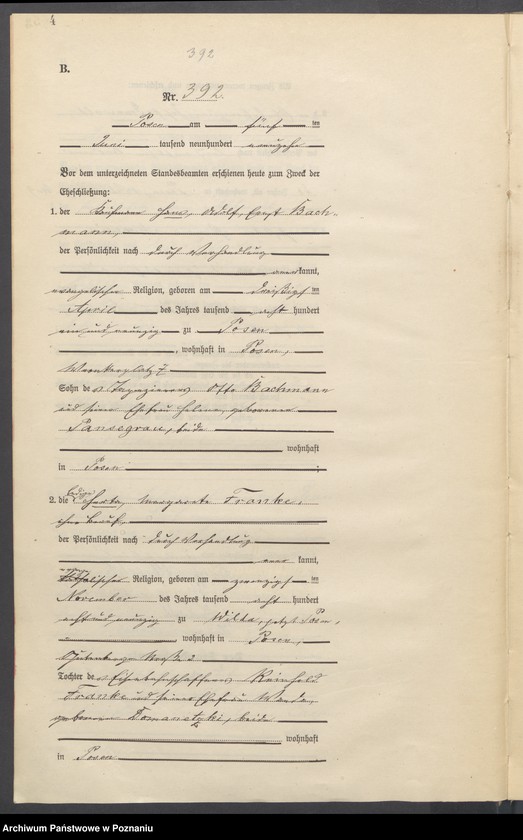 4
392
B.
Nr. 392.
Posen am fünften
Juni tausend neunhundert neunzehn
Vor dem unterzeichneten Standesbeamten erschienen heute zum Zweck der
Eheschließung:
1. der Kaufmann Hans, Adolf, Ernst Bach-
mann,
der Persönlichkeit nach durch Verhandlung
anerkannt,
evangelischer Religion, geboren am dreißigsten
April des Jahres tausend acht hundert
ein und neunzig zu Posen
, wohnhaft in Posen,
Wronkerplatz 7
Sohn des Tapezierers Otto Bachmann
und seiner Ehefrau Helene, geborenen
Pansegrau, beide
wohnhaft
in Posen ;
2. die ledige Herta, Margarete Franke,
ohne Beruf,
der Persönlichkeit nach durch Verhandlung
aner kannt,
Religion, geboren am zwanzigsten
November des Jahres tausend acht hundert
acht und neunzig zu Wilda, jetzt Posen,
, wohnhaft in Posen,
straße 2
Tochter des Eisenbahnschaffners Reinhold
Franke und seiner Ehefrau Wanda,
geborenen Tomanetzki, beide
wohnhaft
in Posen
Archiwum Państwowe w Poznaniu